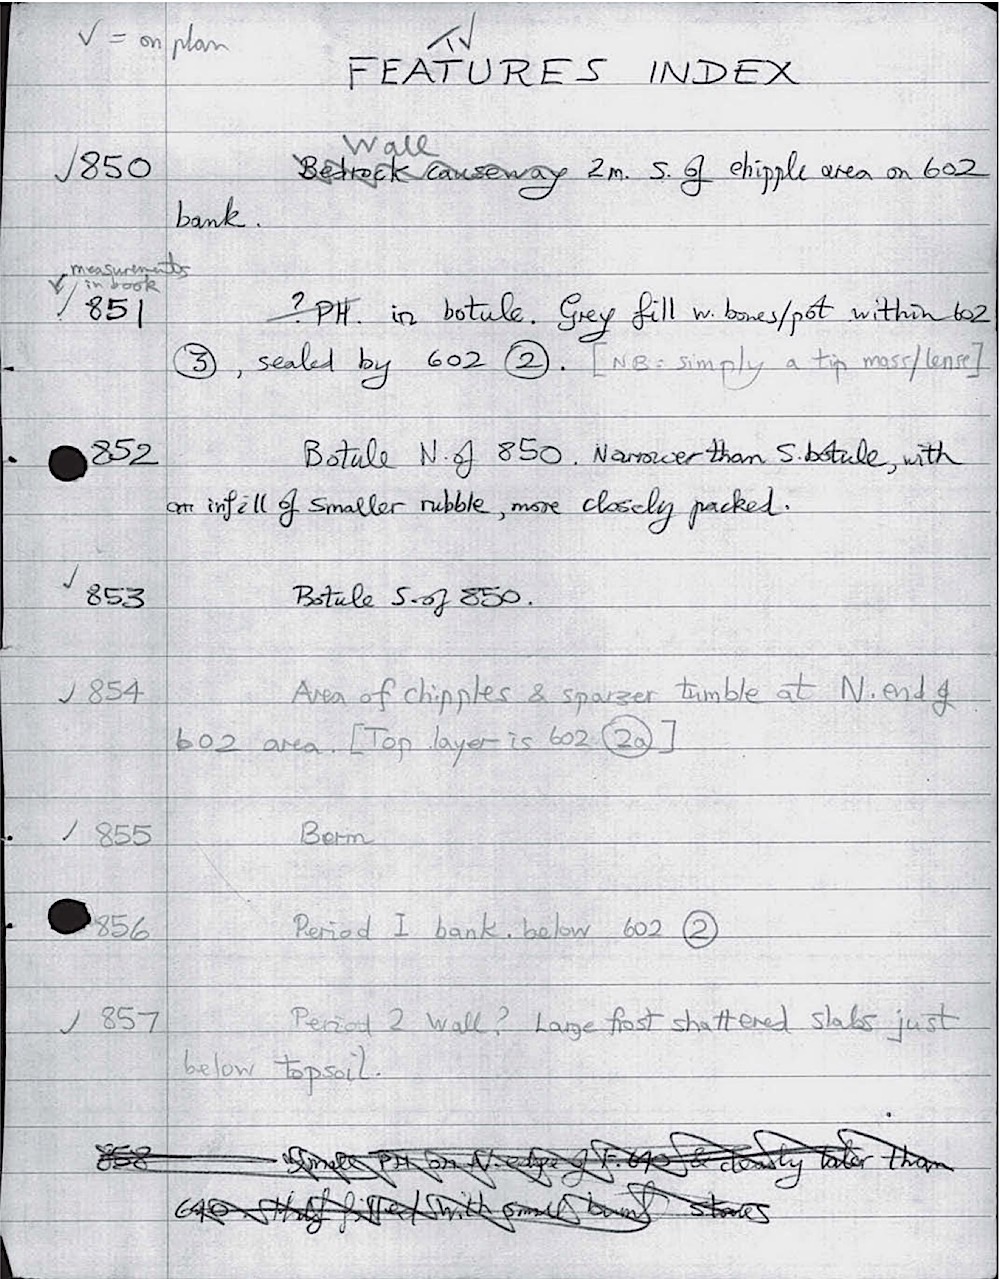 √ = on plan
FEATURES INDEX
Wall
√850 Bedrock causeway 2m. S. of chipple area on 602
bank.
measurements
in book
√ 851 ? PH. in botule. Grey fill w. bones/pot within 602
③, sealed by 602 ②. [NB: simply a tip mass/lense]
852 Botule N. of 850. Narrower than S. botule, with
an infill of smaller rubble, more closely packed.
√ 853 Botule S. of 850.
√ 854 Area of chipples & sparzer tumble at N. end of
602 area. [Top layer is 602 (2a)]
√ 855 Berm
856 Period I bank. below 602 ②
√ 857 Period 2 Wall? Large frost shattered slabs just
below topsoil.
858 Small PH on N. edge of F. 640 & clearly later than
640. Half filled with small burnt stones